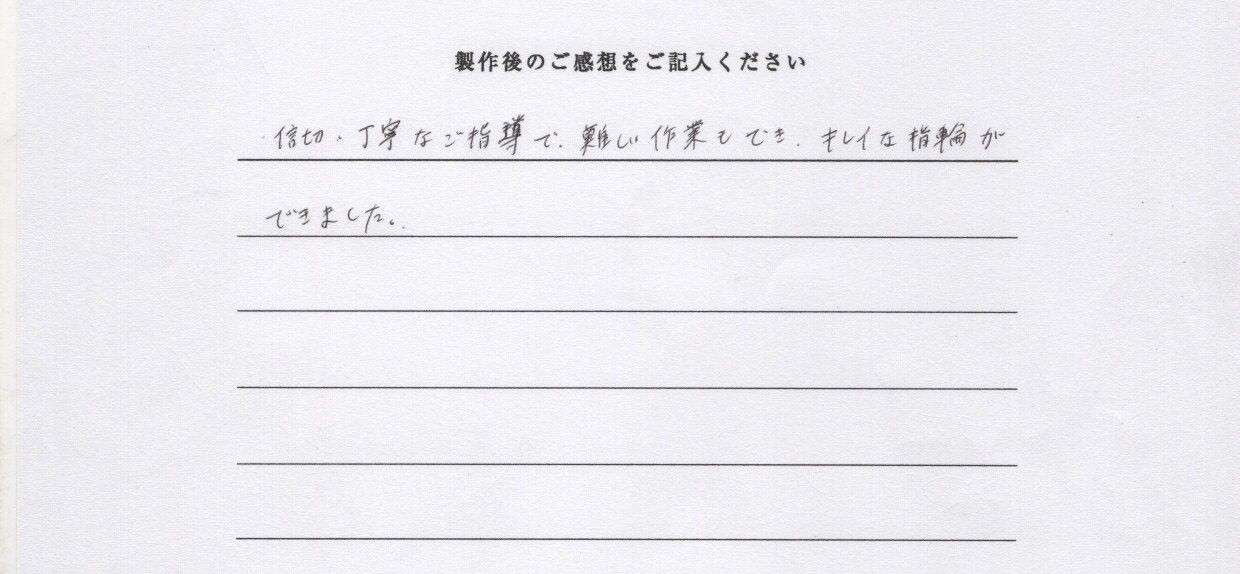 製作後のご感想をご記入ください
信切・丁寧なご指導で、難しい作業もでき、キレイな指輪が
できました。